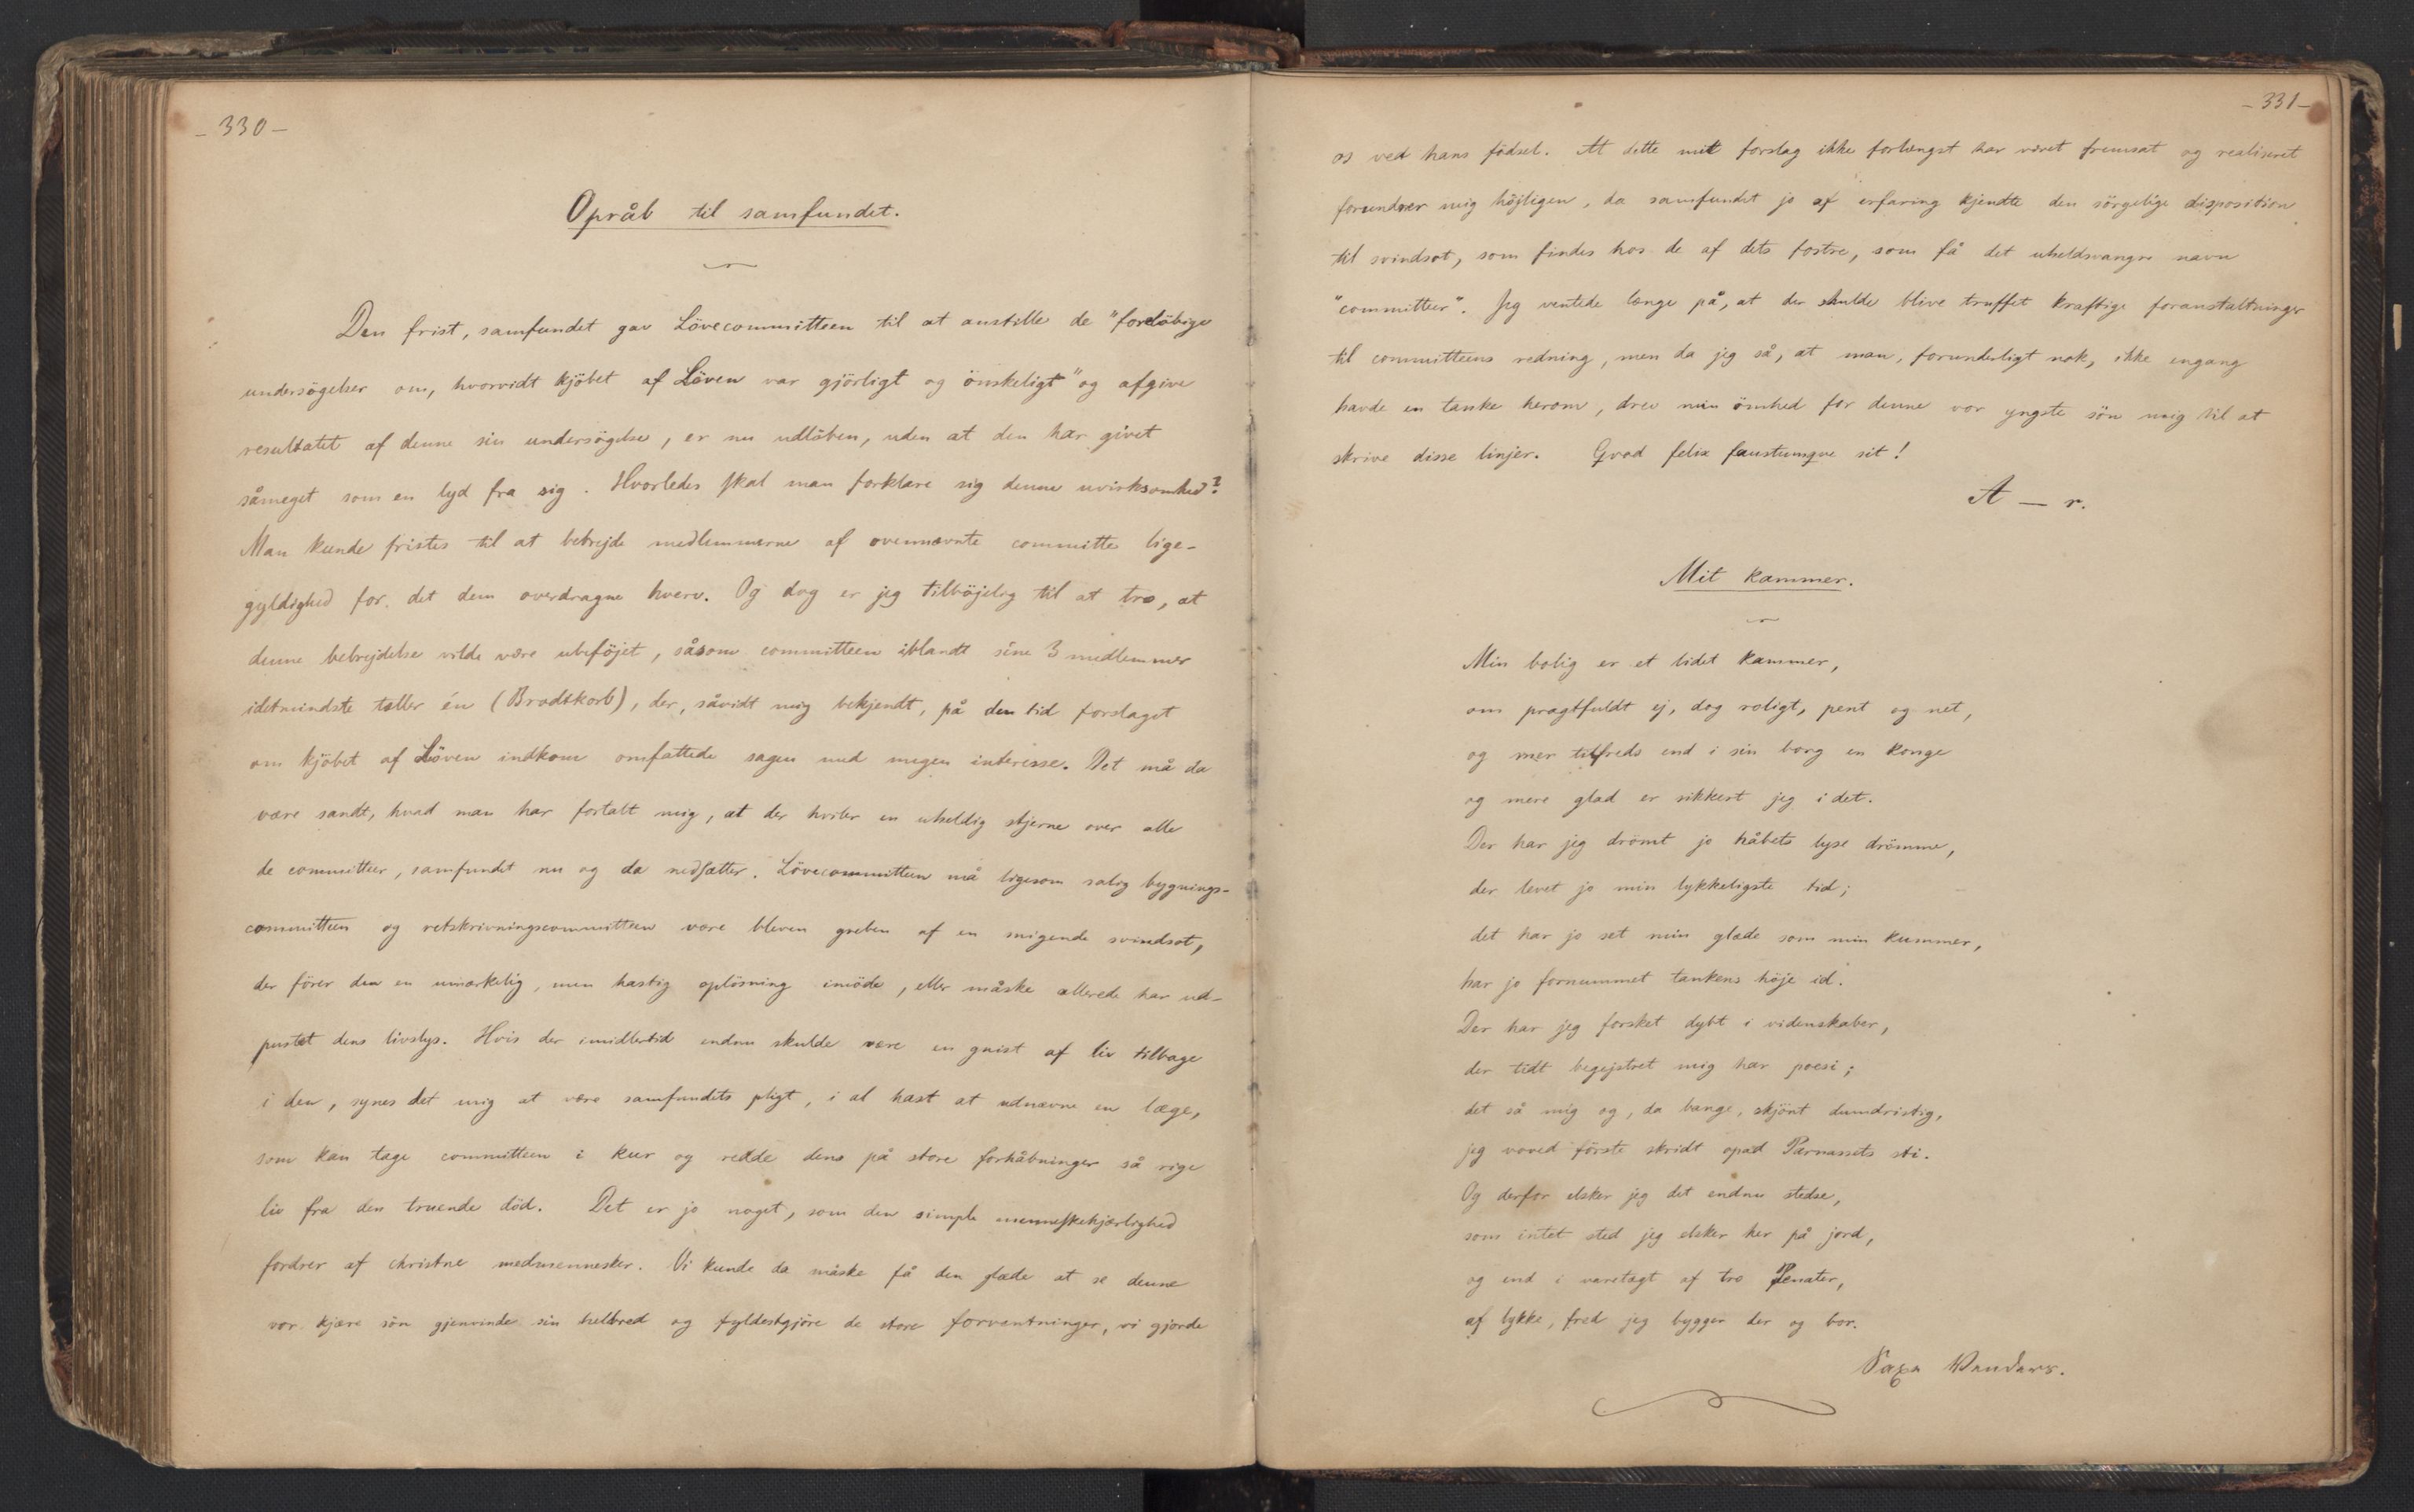 - 330 -
Opråb til samfundet.
Den frist, samfundet gav Lövecommitteen til at anstille de "foreløbige
undersögelser om, hvorvidt kjöbet af Löven var gjörligt og önskeligt" og afgive
resultatet af denne sin undersögelse, er nu udlöben, uden at den har givet
såmeget som en lyd fra sig. Hvorledes skal man forklare sig denne uvirksomhed?
Man kunde fristes til at bebrejde medlemmerne af ovennævnte committe lige-
gyldighed for det dem overdragne hverv. Og dog er jeg tilböjelig til at tro, at
denne bebrejdelse vilde være ubeföjet, såsom committeen iblandt sine 3 medlemmer
idetmindste tæller én (Brodtkorb), der, såvidt mig bekjendt, på den tid forslaget
om kjöbet af Löven indkom omfattede sagen med megen interesse. Det må da
være sandt, hvad man har fortalt mig, at der hviler en uheldig stjerne over alle
de committeer, samfundet nu og da nedsætter. Lövecommitteen må ligesom salig bygnings-
committeen og retskrivningscommitteen være bleven greben af en snigende svindsot,
der förer den en umærkelig, men hastig oplösning imöde, eller måske allerede har ud-
pustet dens livslys. Hvis der imidlertid endnu skulde være en gnist af liv tilbage
i den, synes det mig at være samfundets pligt, i al hast at udnævne en læge,
som kan tage committeen i kur og redde dens på store forhåbninger så rige
liv fra den truende död. Det er jo noget, som den simple menneskekjærlighed
fordrer af christne medmennesker. Vi kunde da måske få den glæde at se denne
vor kjære sön gjenvinde sin helbred og fyldestgjöre de store forventninger, vi gjorde
- 331 -
os ved hans födsel. At dette mit forslag ikke forlængst har været fremsat og realiseret
forundrer mig höjligen, da samfundet jo af erfaring kjendte den sörgelige disposition
til svindsot, som findes hos de af dets fostre, som få det uheldsvangre navn
"committeer". Jeg ventede længe på, at der skulde blive truffet kraftige foranstaltninger
til committeens redning, men da jeg så, at man, forunderligt nok, ikke engang
havde en tanke herom, drev min ömhed for denne vor yngste sön mig til at
skrive disse linjer. Qvod felix faustumqve sit!
A — r.
Mit kammer.
Min bolig er et lidet kammer,
om pragtfuldt ej, dog roligt, pent og net,
og mer tilfreds end i sin borg en konge
og mere glad er sikkert jeg i det.
Der har jeg drömt jo håbets lyse drömme,
der levet jo min lykkeligste tid;
det har jo set min glæde som min kummer,
har jo fornummet tankens höje id.
Der har jeg forsket dybt i videnskaber,
der tidt begejstret mig har poesi;
det så mig og, da bange, skjönt dumdristig,
jeg voved förste skridt opad Parnassets sti.
Og derfor elsker jeg det endnu stedse,
som intet sted jeg elsker her på jord,
og end i varetægt af tro Penater,
af lykke, fred jeg bygger der og bor.